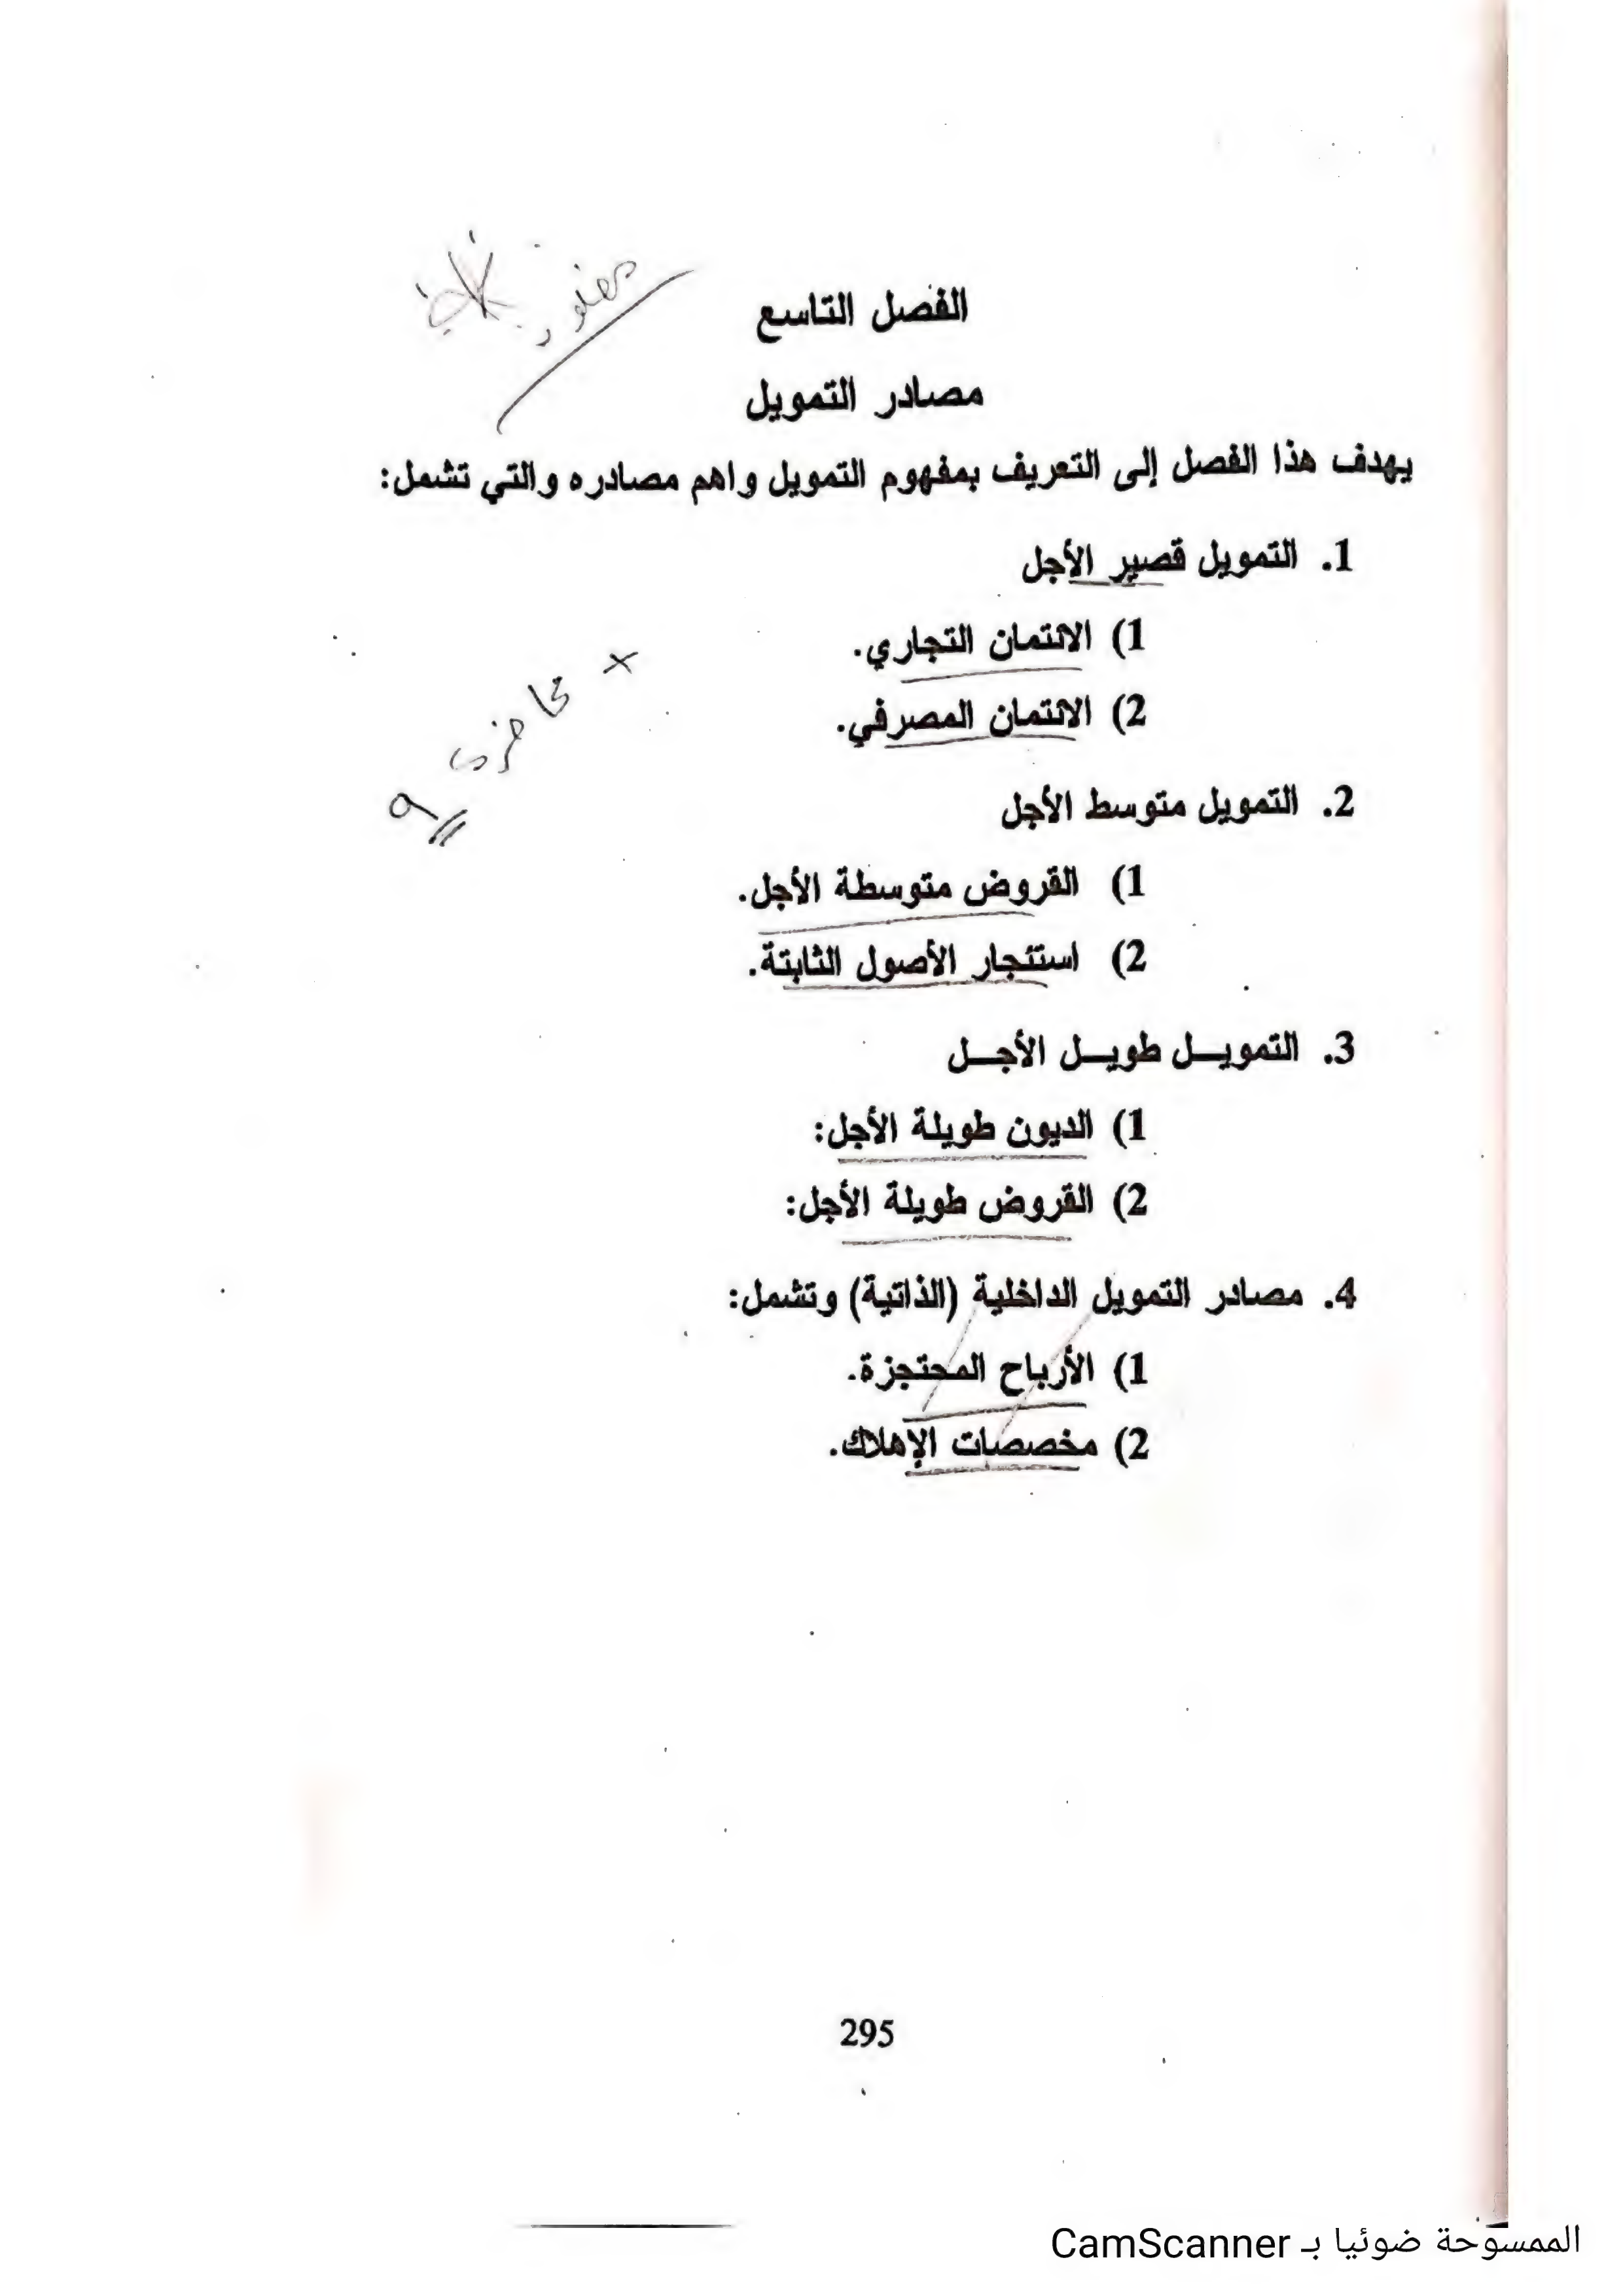 الفصل التاسع
مصادر التمويل
يهدف هذا الفصل إلى التعريف بمفهوم التمويل واهم مصادره والتي تشمل:
1. التمويل قصير الأجل
1) الائتمان التجاري.
2) الائتمان المصرفي.
2. التمويل متوسط الأجل
1) القروض متوسطة الأجل.
2) استئجار الأصول الثابتة.
3. التمويــل طويــل الأجــل
1) الديون طويلة الأجل:
2) القروض طويلة الأجل:
4. مصادر التمويل الداخلية (الذاتية) وتشمل:
1) الأرباح المحتجزة.
2) مخصصات الإهلاك.
295
الممسوحة ضوئيا بـ CamScanner